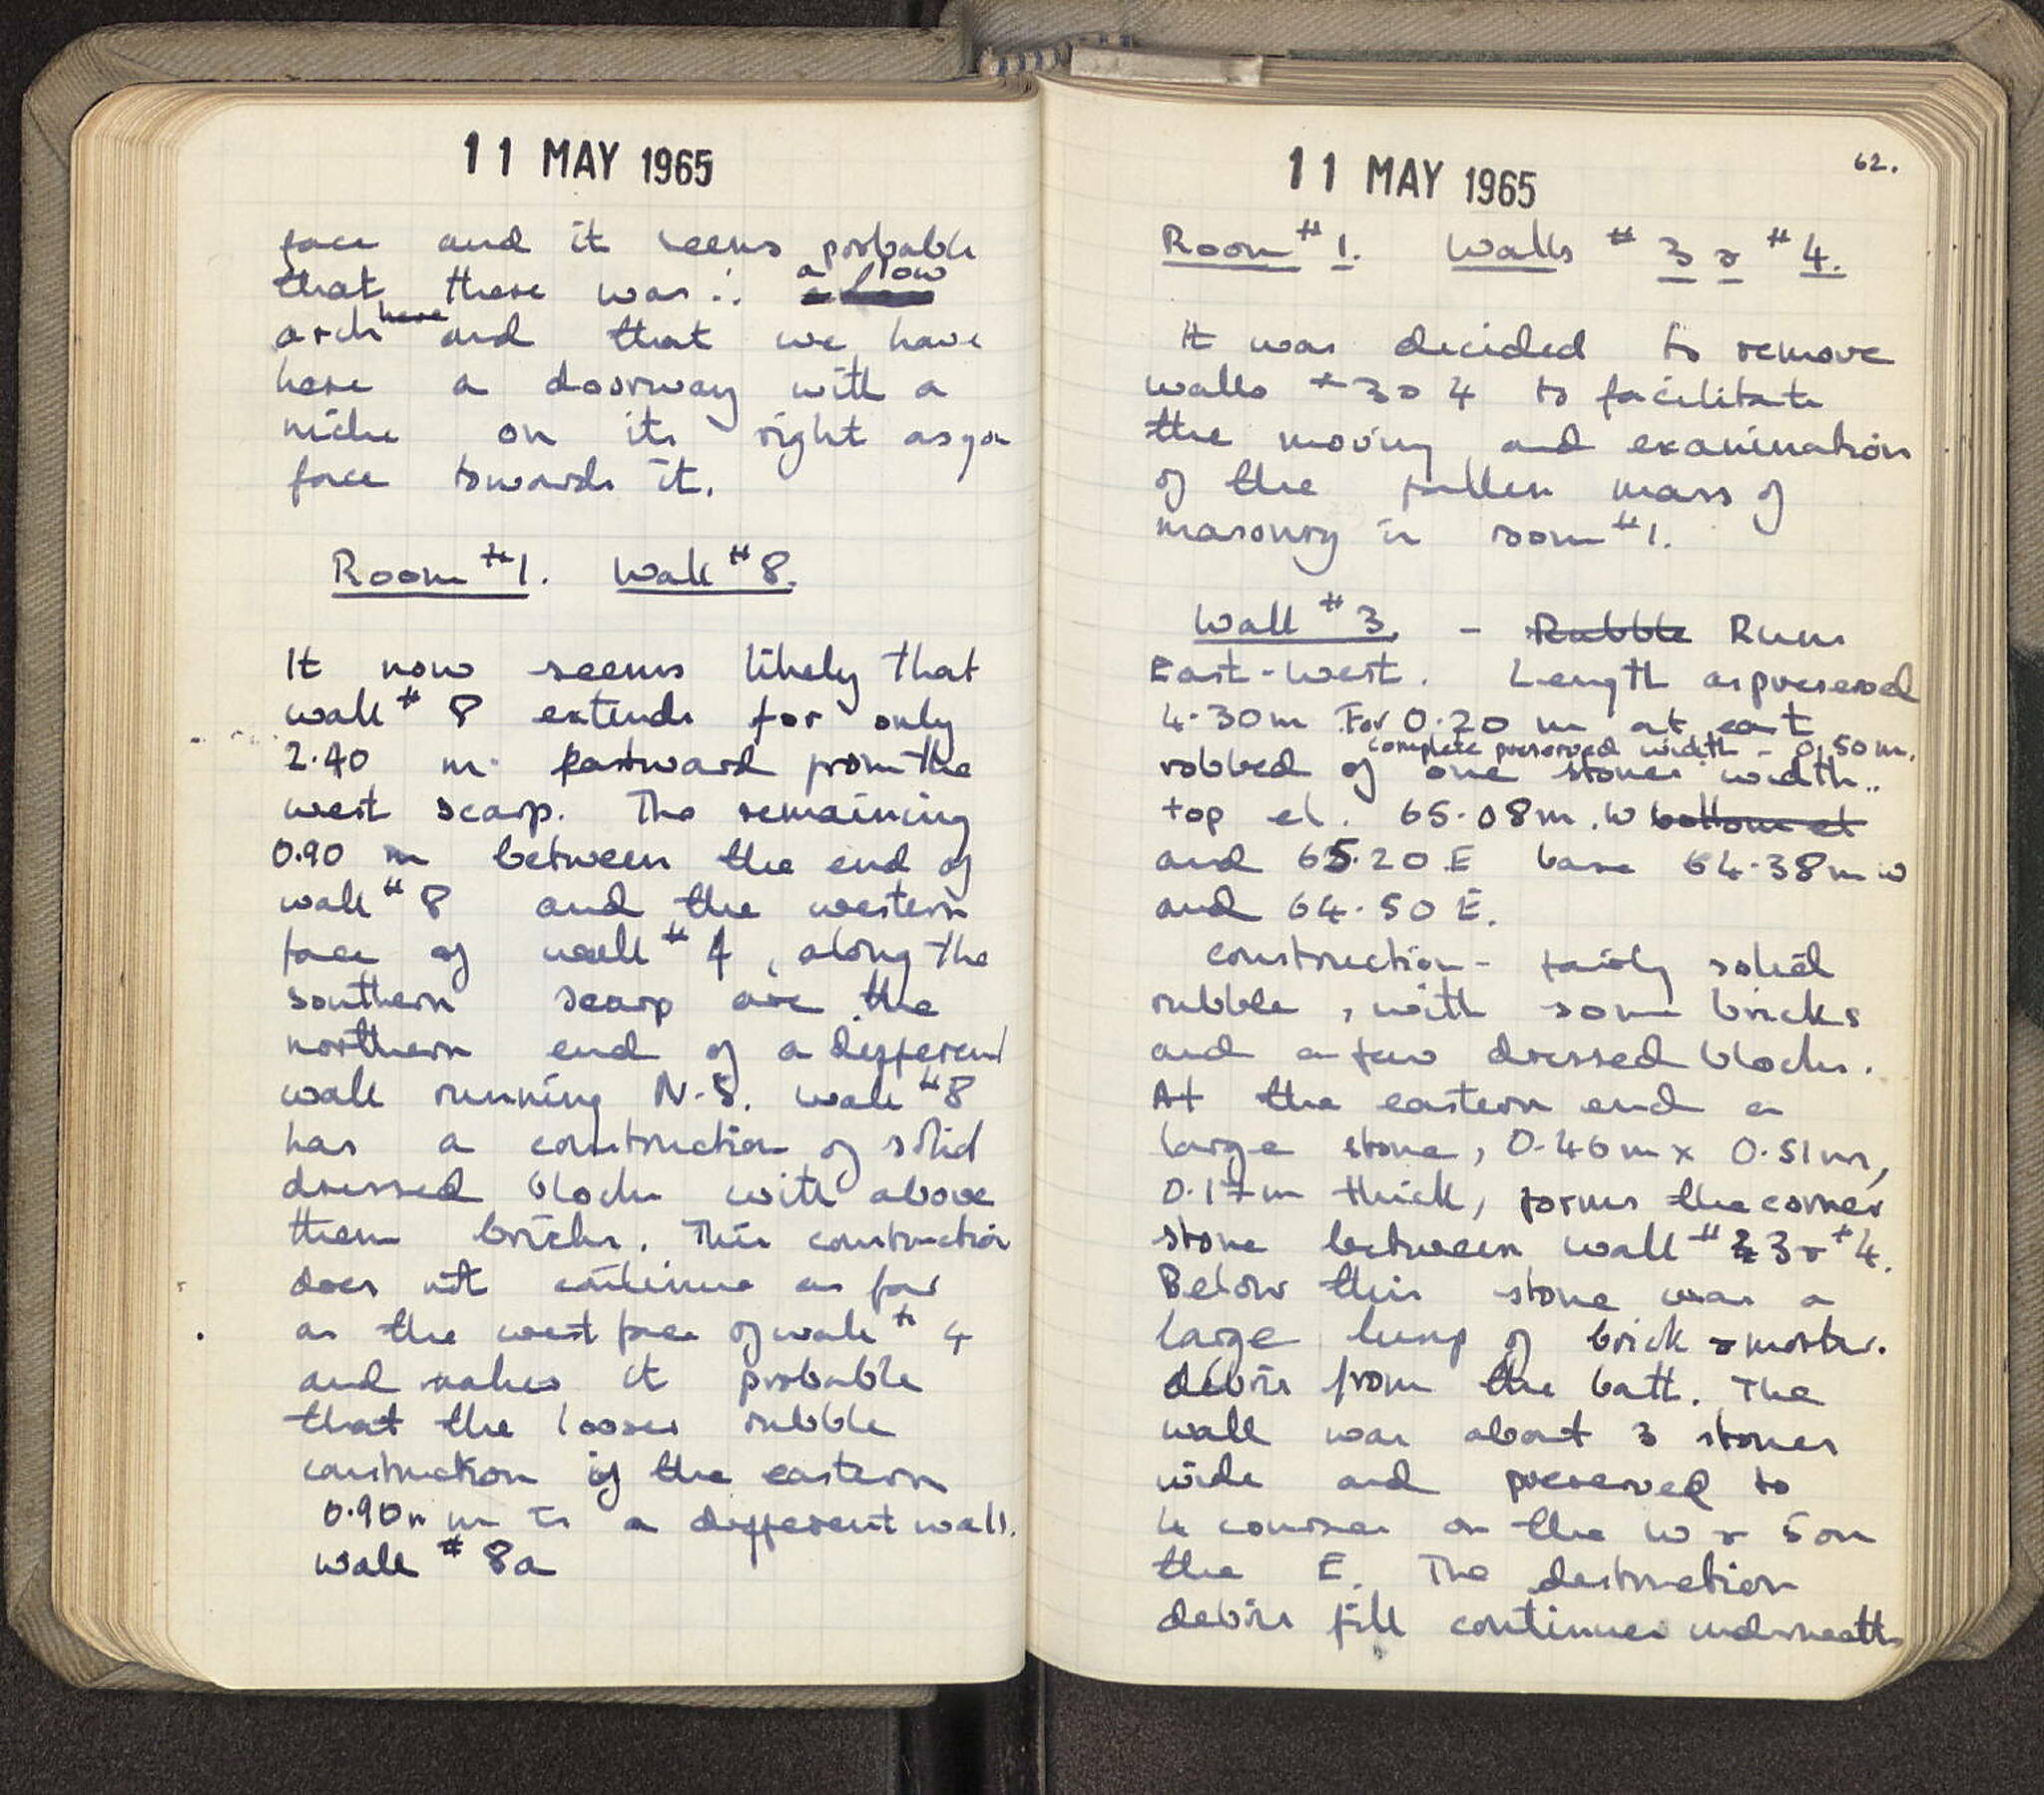 11 MAY 1965
face and it seems probable
that there was ∴ a low
arch here and that we have
here a doorway with a
niche on its right as you
face towards it.
Room #1. Wall #8.
It now seems likely that
wall # 8 extends for only
2.40 m. eastward from the
west scarp. The remaining
0.90 m between the end of
wall #8 and the western
face of wall # 4, along the
southern scarp are the
northern end of a different
wall running N-S. Wall #8
has a construction of solid
dressed blocks with above
them bricks. This construction
does not continue as far
as the west face of wall # 4
and makes it probable
that the looser rubble
construction of the eastern
0.90 m is a different wall.
wall # 8a
11 MAY 1965
62.
Room #1. Walls # 3 & #4.
It was decided to remove
walls #3 & 4 to facilitate
the moving and examination
of the fallen mass of
masonry in room #1.
Wall #3. - Rubble Runs
East-West. Length as preserved
4.30m For 0.20 m at east
complete preserved width - 0.50m.
robbed of one stones width..
top el. 65.08m. W bottom el
and 65.20 E base 64.38m W
and 64.50 E.
construction - fairly solid
rubble, with some bricks
and a few dressed blocks.
At the eastern end a
large stone, 0.46m x 0.51m,
0.17m thick, forms the corner
stone between wall # 3 & #4.
Below this stone was a
large lump of brick & mortar.
debris from the bath. The
wall was about 3 stones
wide and preserved to
4 courses on the W & 5 on
the E. The destruction
debris fill continues underneath